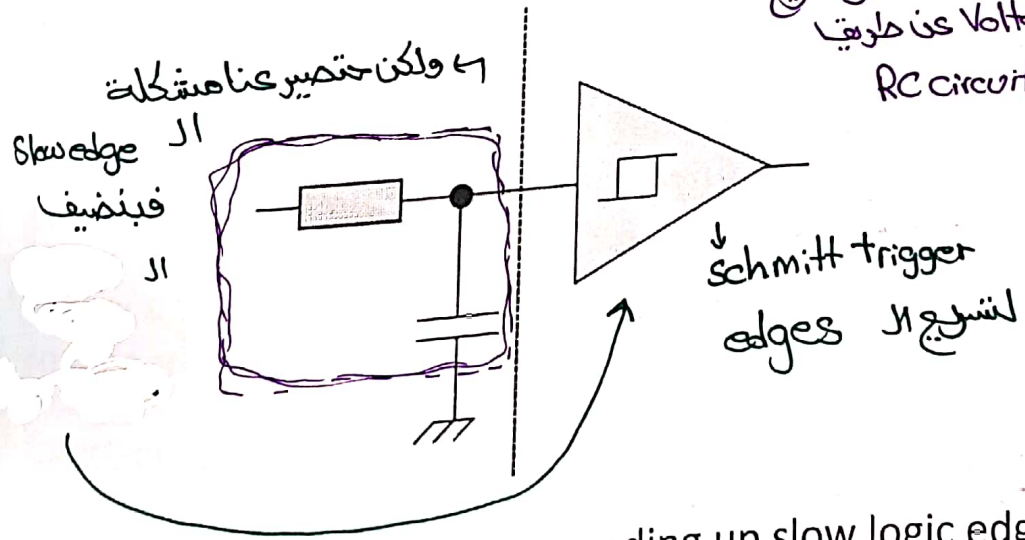 عن طريق Volt
RC circui
← ولكن حتصير عنا مشكلة
الـ
Slow edge
فبنضيف
الـ
↓
Schmitt trigger
لتسريع الـ edges
ding up slow logic edg